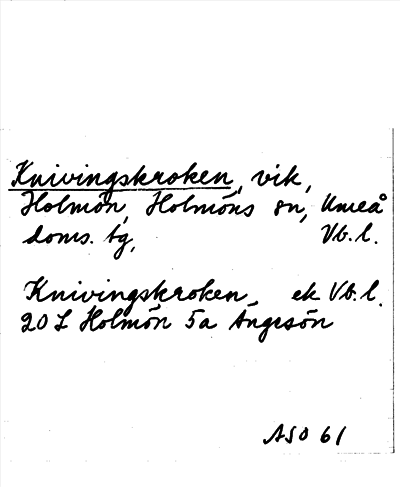 Knivingskroken, vik,
Holmön, Holmöns sn, Umeå
doms. tg, Vb. l.
Knivingskroken ek Vb. l.
20 L Holmön 5a Ängesön
ASO 61